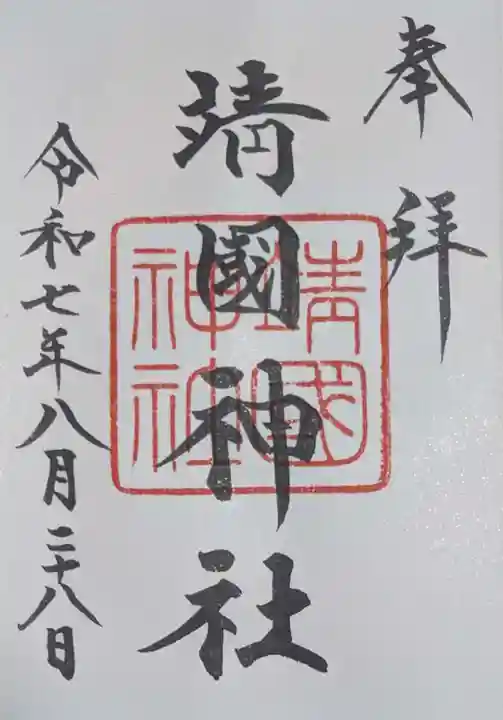 奉拝
靖國神社
靖國神社
令和七年八月二十八日